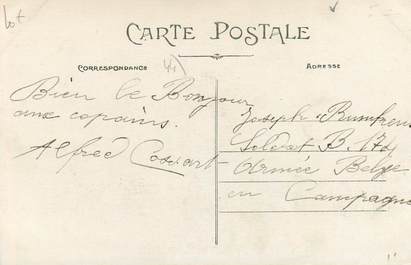 lot
CARTE POSTALE
CORRESPONDANCE
ADRESSE
Bien le Bonjour
aux copains.
Alfred
Joseph
Soldat B. 174
Armée Belge
en Campagne